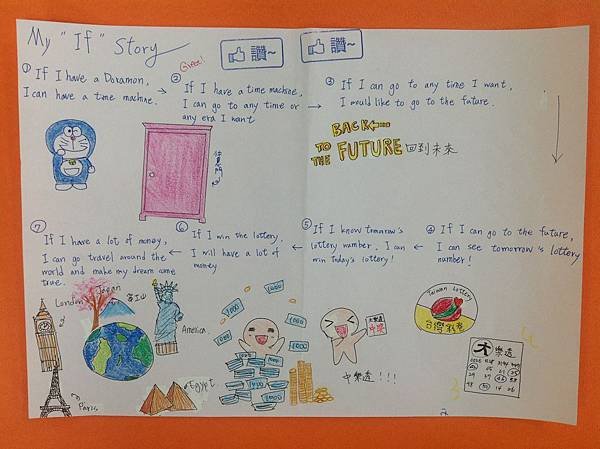 My "If" Story
讚~
讚~
Great!
① If I have a Doramon,
I can have a time machine.
② If I have a time machine,
I can go to any time or
any era I want
③ If I can go to any time I want,
I would like to go to the future.
BACK
TO THE FUTURE 回到未來
④ If I can go to the future,
I can see tomorrow's lottery
number!
⑤ If I know tomrrow's
lottery number, I can
win today's lottery!
⑥ If I win the lottery,
I will have a lot of
money
⑦ If I have a lot of money,
I can go travel around the
world and make my dream come
true.
London
Japan
富士山
America
Egypt
Paris
1000
1000
1000
1000
大樂透
中獎
中樂透!!!
Taiwan Lottery
台灣彩券
大樂透